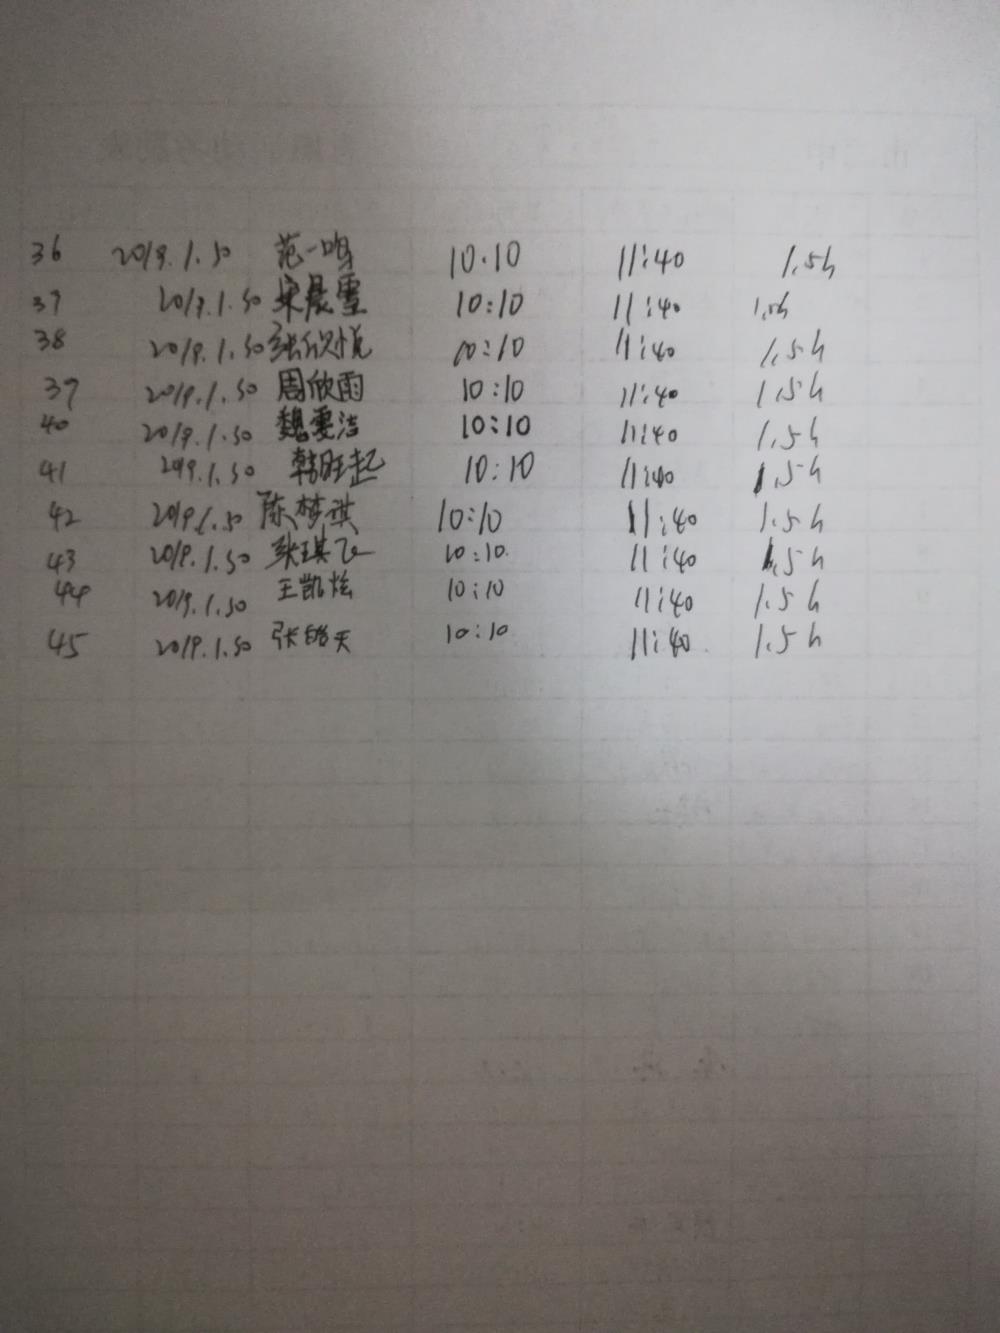 36 2019.1.30 范一鸣 10.10 11:40 1.5h
37 2019.1.30 宋晨雪 10:10 11:40 1.5h
38 2019.1.30 张欣悦 10:10 11:40 1.5h
39 2019.1.30 周欣雨 10:10 11:40 1.5h
40 2019.1.30 魏雯洁 10:10 11:40 1.5h
41 2019.1.30 韩旺起 10:10 11:40 1.5h
42 2019.1.30 陈梦琪 10:10 11:40 1.5h
43 2019.1.30 张琪飞 10:10. 11:40 1.5h
44 2019.1.30 王凯炫 10:10 11:40 1.5h
45 2019.1.30 张皓天 10:10 11:40 1.5h